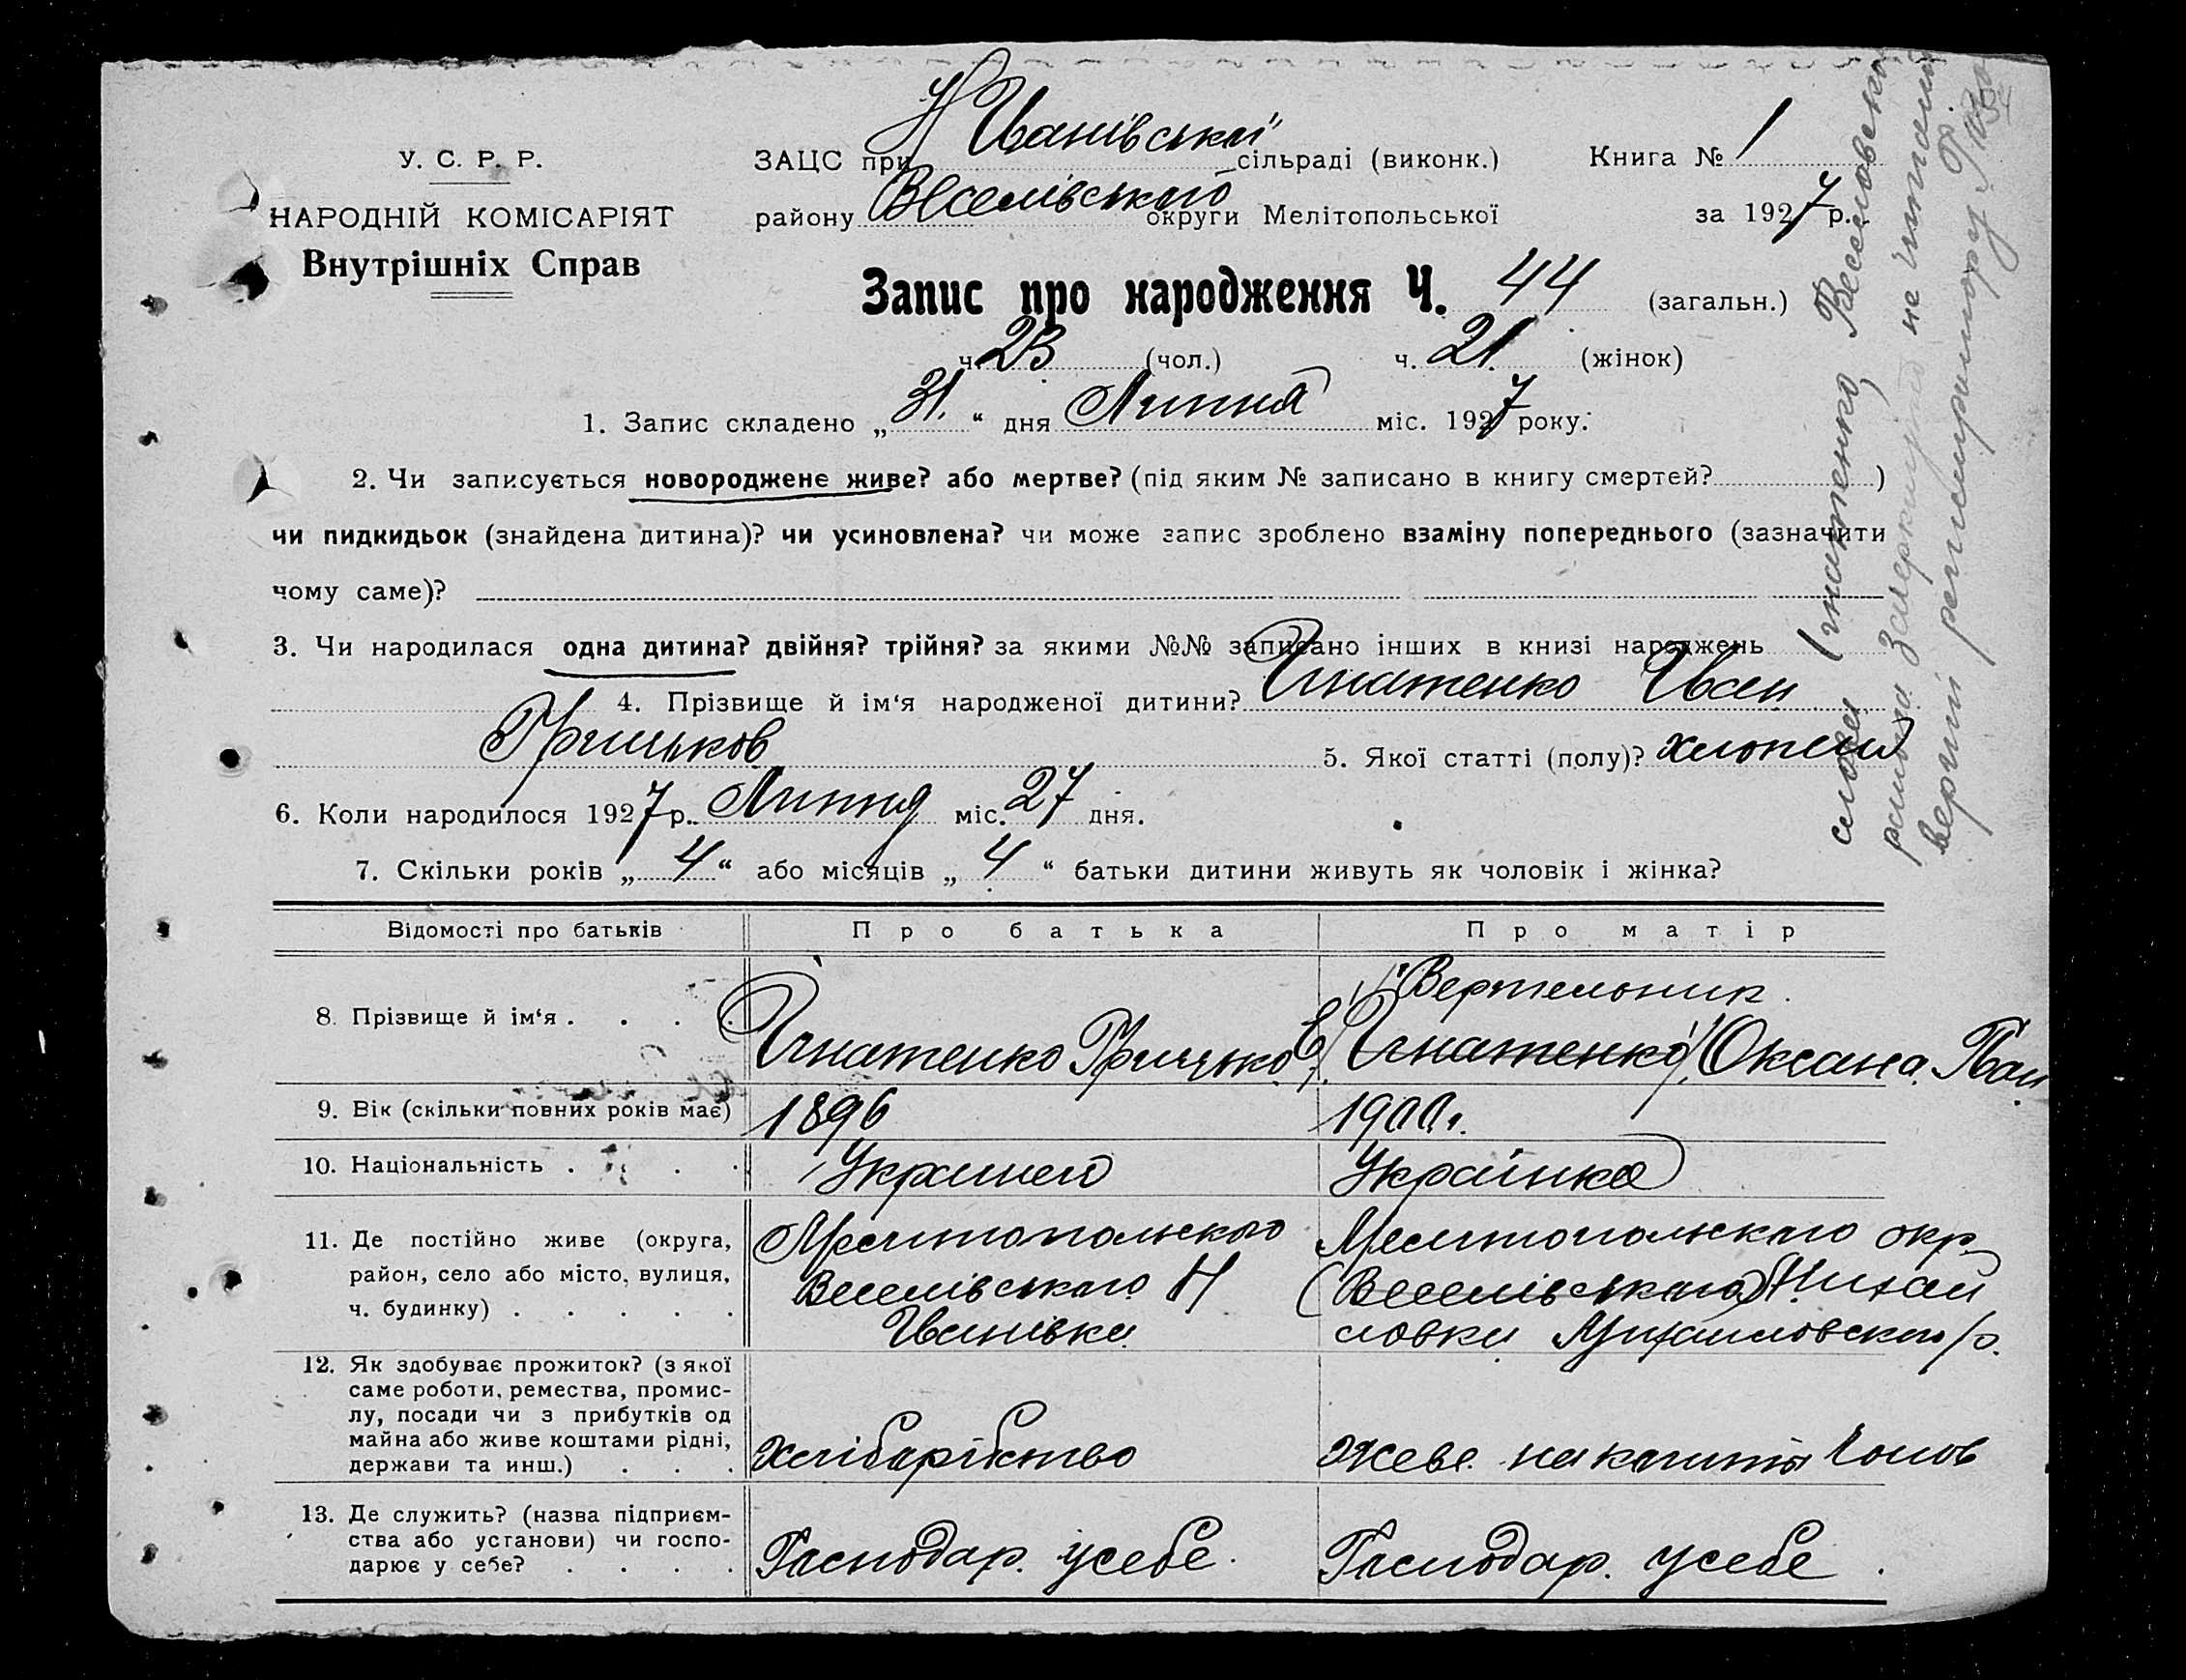 Н Іванівській
У. С. Р. Р.
ЗАЦС при сільраді (виконк.) Книга № 1
НАРОДНІЙ КОМІСАРІЯТ
району Веселівського округи Мелітопольської за 1927 р.
Внутрішніх Справ
Запис про народження Ч. 44 (загальн.)
ч. 23 (чол.) ч. 21. (жінок)
1. Запис складено „31.“ дня Липня міс. 1927 року.
2. Чи записується новороджене живе? або мертве? (під яким № записано в книгу смертей? )
чи пидкидьок (знайдена дитина)? чи усиновлена? чи може запис зроблено взаміну попереднього (зазначити
чому саме)?
3. Чи народилася одна дитина? двійня? трійня? за якими №№ записано інших в книзі народжень
4. Прізвище й ім‘я народженої дитини? Игнатенко Іван
Грицьков 5. Якої статті (полу)? хлопець
6. Коли народилося 1927 р. Липня міс. 27 дня.
7. Скільки років „4“ або місяців „4“ батьки дитини живуть як чоловік і жінка?
Відомості про батьків Про батька Про матір
8. Прізвище й ім‘я . . . . Игнатенко Грицько Вертельник Игнатенко Оксана Іван
9. Вік (скільки повних років має) 1896 1900 г.
10. Національність . . . . Украинец Українка
11. Де постійно живе (округа, Мелитопольского Мелитопольского окр
район, село або місто, вулиця, Веселівського Н (Веселівського)
ч. будинку) . . . . . Іванівка ловки Михаиловского р.
12. Як здобуває прожиток? (з якої
саме роботи, ремества, промис-
лу, посади чи з прибутків од
майна або живе коштами рідні, Хліборібство Жеве на кошти Чолов
держави та инш.) . . .
13. Де служить? (назва підприєм-
ства або установи) чи госпо- Господар. усебе. Господар. усебе.
дарює у себе? . . . .
слова Ігнатенко, Веселовско
не читать
верно регистратору